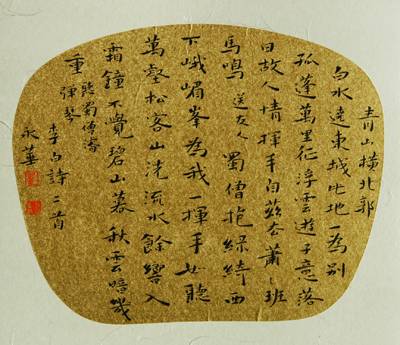 青山橫北郭
白水遶東城此地一為別
孤蓬萬里征浮雲遊子意落
日故人情揮手自茲去蕭〻班
馬鳴 送友人 蜀僧抱綠綺西
下峨嵋峯為我一揮手如聽
萬壑松客心洗流水餘響入
霜鐘不覺碧山暮秋雲暗幾
重 彈琴
聽蜀僧濬
李白詩二首
永華